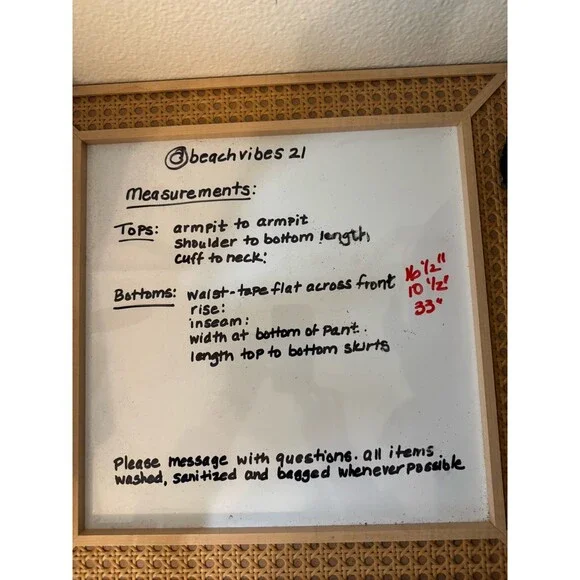 @beachvibes 21
Measurements:
Tops: armpit to armpit
shoulder to bottom length,
cuff to neck:
Bottoms: waist-tape flat across front 16 1/2"
rise: 10 1/2"
inseam: 33"
width at bottom of pant.
length top to bottom skirts
Please message with questions. all items
washed, sanitized and bagged whenever possible